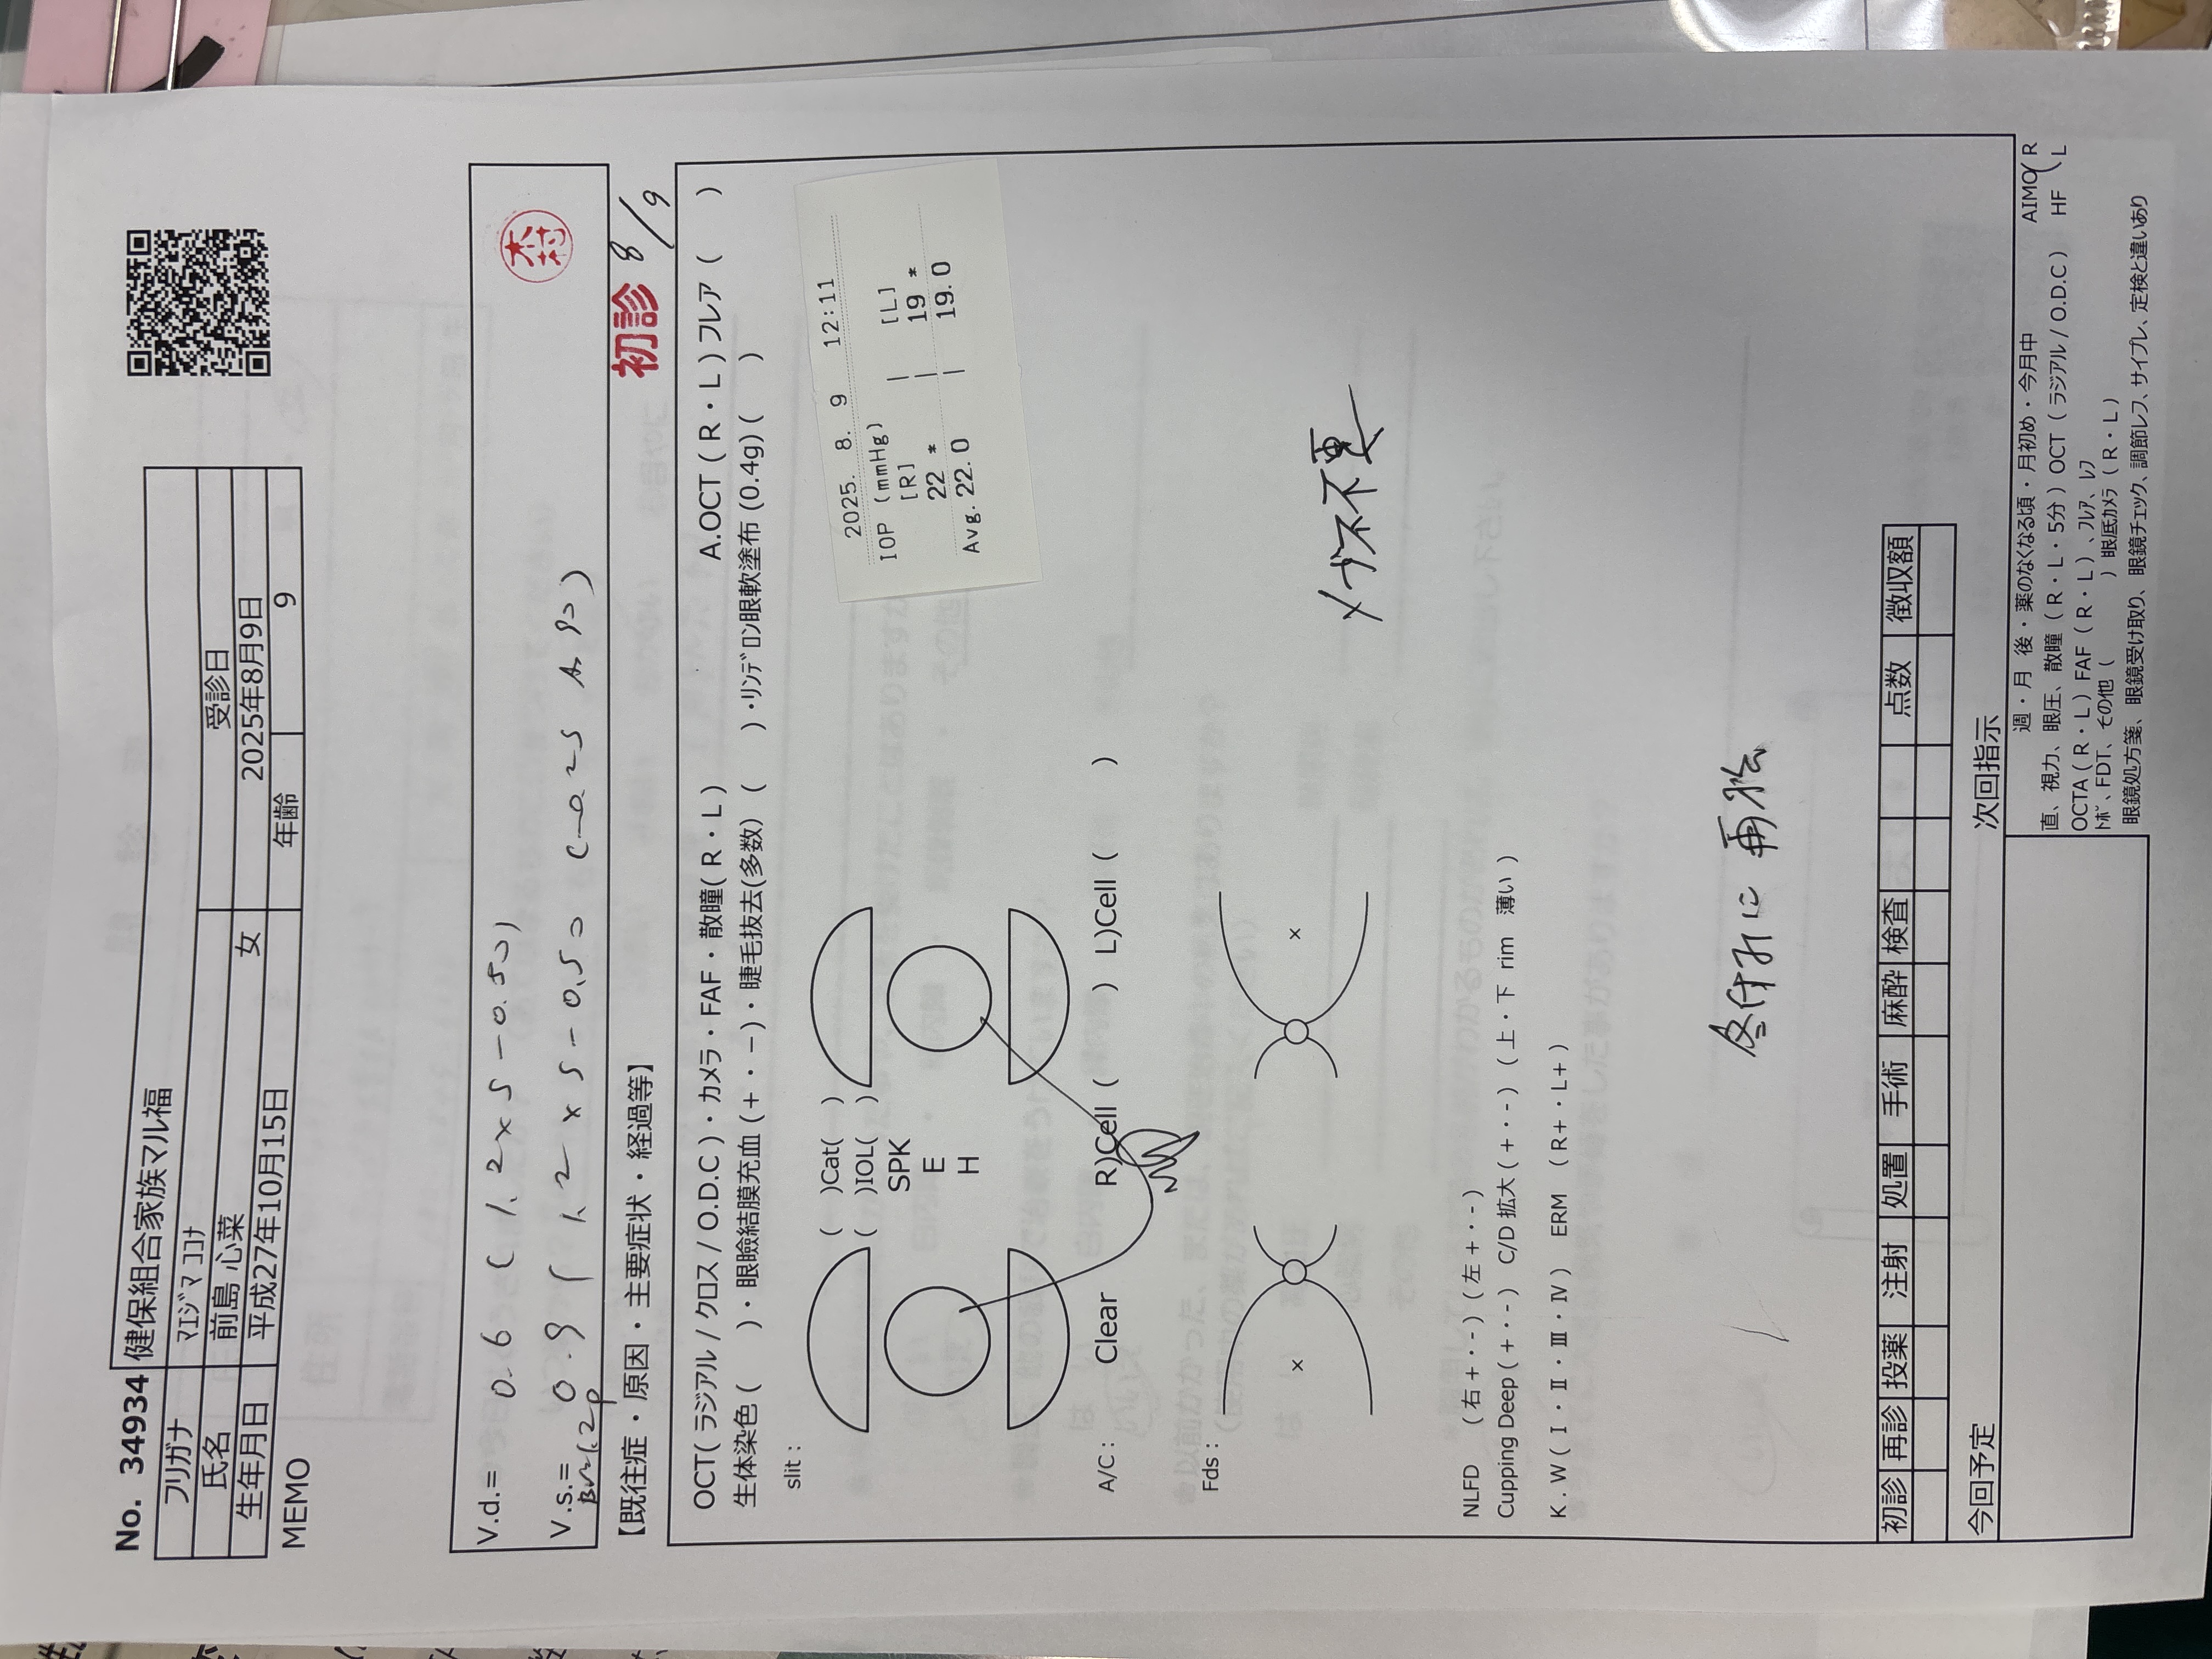 No. 34934 健保組合家族マル福
フリガナ ﾏｴｼﾞﾏ ｺｺﾅ
氏名 前島 心菜 女 受診日
生年月日 平成27年10月15日 2025年8月9日
年齢 9
MEMO
V.d.= 0.6 ( 1.2 × S -0.50)
木村
V.s.= 0.9 ( 1.2 × S -0.50 (-0.25 A 90)
【既往症・原因・主要症状・経過等】 初診 8/9
OCT( ラジアル / クロス / O.D.C )・カメラ・FAF・散瞳( R・L ) A.OCT ( R・L ) フレア ( )
生体染色 ( )・眼瞼結膜充血 (+・−)・睫毛抜去(多数) ( )・ﾘﾝﾃﾞﾛﾝ眼軟塗布 (0.4g) ( )
slit :
( )Cat( )
( )IOL( )
SPK
E
H
2025. 8. 9 12:11
IOP (mmHg)
[R] | [L]
22 * | 19 *
Avg. 22.0 | 19.0
A/C : Clear R)Cell ( ) L)Cell ( )
Fds :
× ×
メガネ不要
NLFD ( 右 +・- ) ( 左 +・- )
Cupping Deep ( +・- ) C/D 拡大 ( +・- ) ( 上・下 rim 薄い )
K . W ( Ⅰ・Ⅱ・Ⅲ・Ⅳ ) ERM ( R+・L+ )
冬休みに 再検
初診 再診 投薬 注射 処置 手術 麻酔 検査 点数 徴収額
今回予定 次回指示
週・月 後・薬のなくなる頃・月初め・今月中 AIMO R
直、視力、眼圧、散瞳 ( R・L・5分 ) OCT ( ラジアル / O.D.C ) HF L
OCTA ( R・L ) FAF ( R・L ) 、ﾌﾚｱ、ﾚﾌ
ﾄﾎﾟ、FDT、その他 ( ) 眼底ｶﾒﾗ ( R・L )
眼鏡処方箋、眼鏡受け取り、眼鏡チェック、調節レフ、サイプレ、定検と違いあり